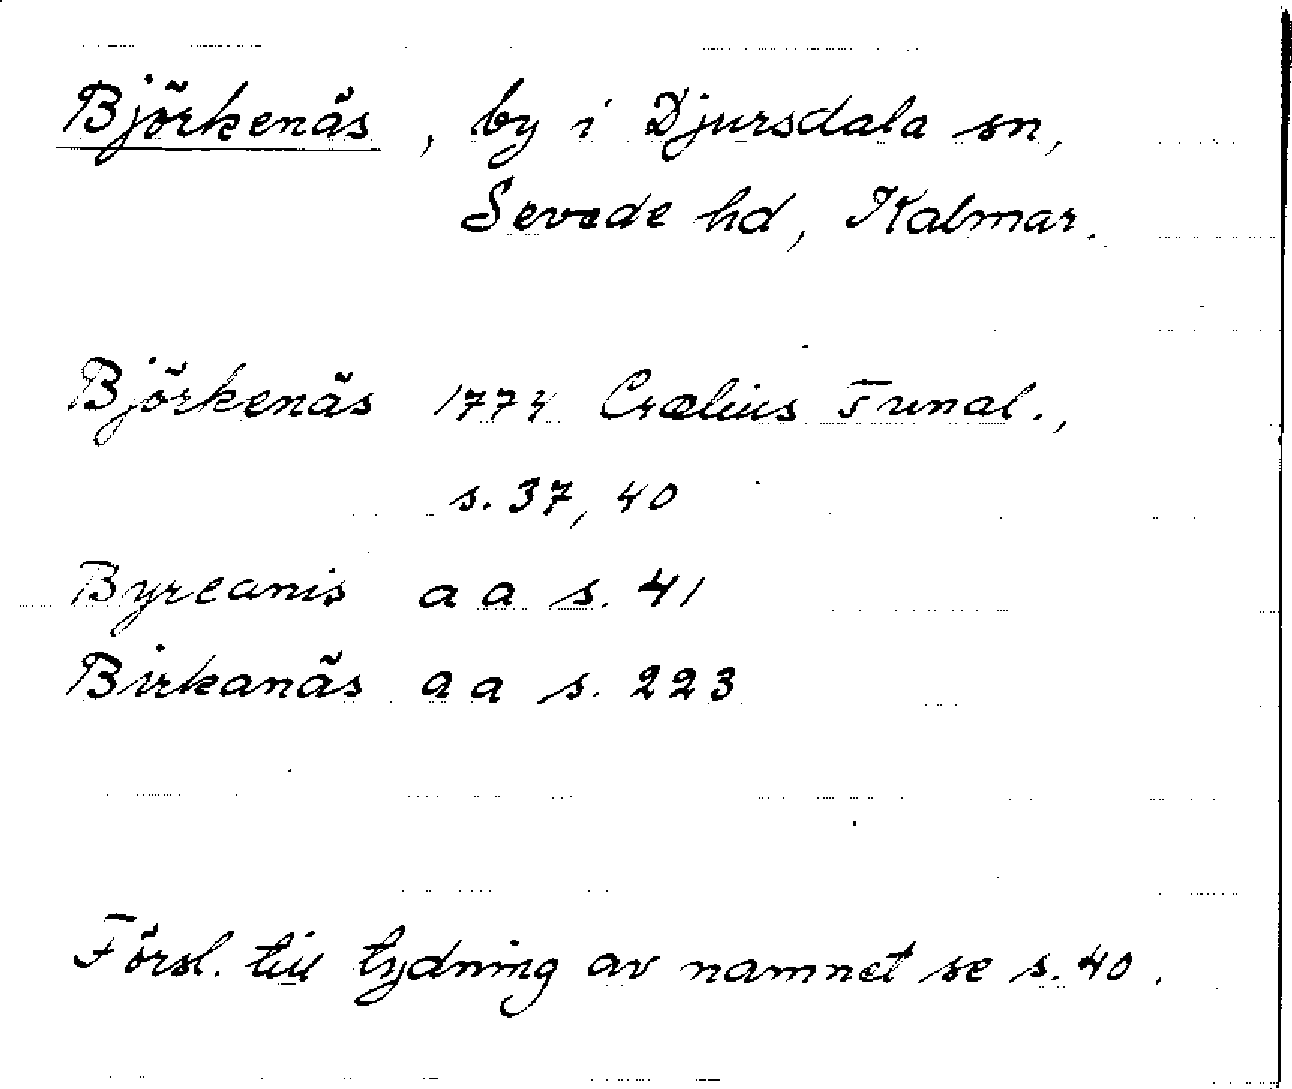 Björkenäs, by i Djursdala sn,
Sevede hd, Kalmar.
Björkenäs 1774 Crælius Trunal.,
s. 37, 40
Byrcanis a a s. 41
Birkanäs a a s. 223
Försl. till tydning av namnet se s. 40.